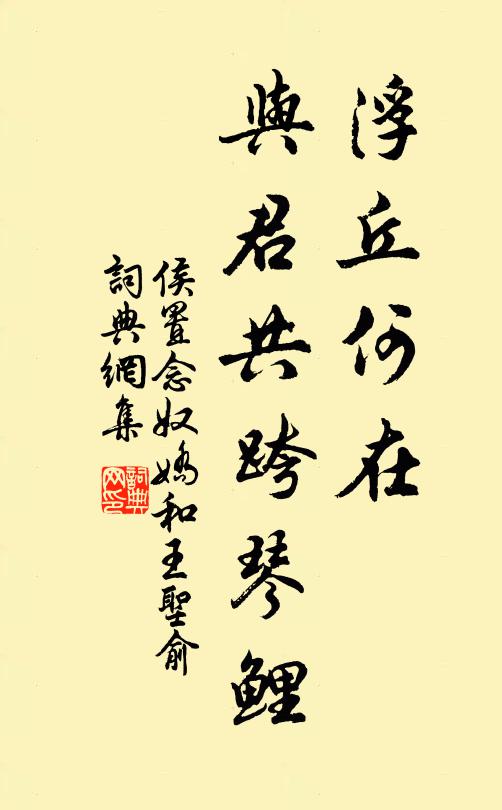 浮丘何在
與君共跨琴鯉
侯置念奴嬌和王聖俞
詞典網集
詞典网印